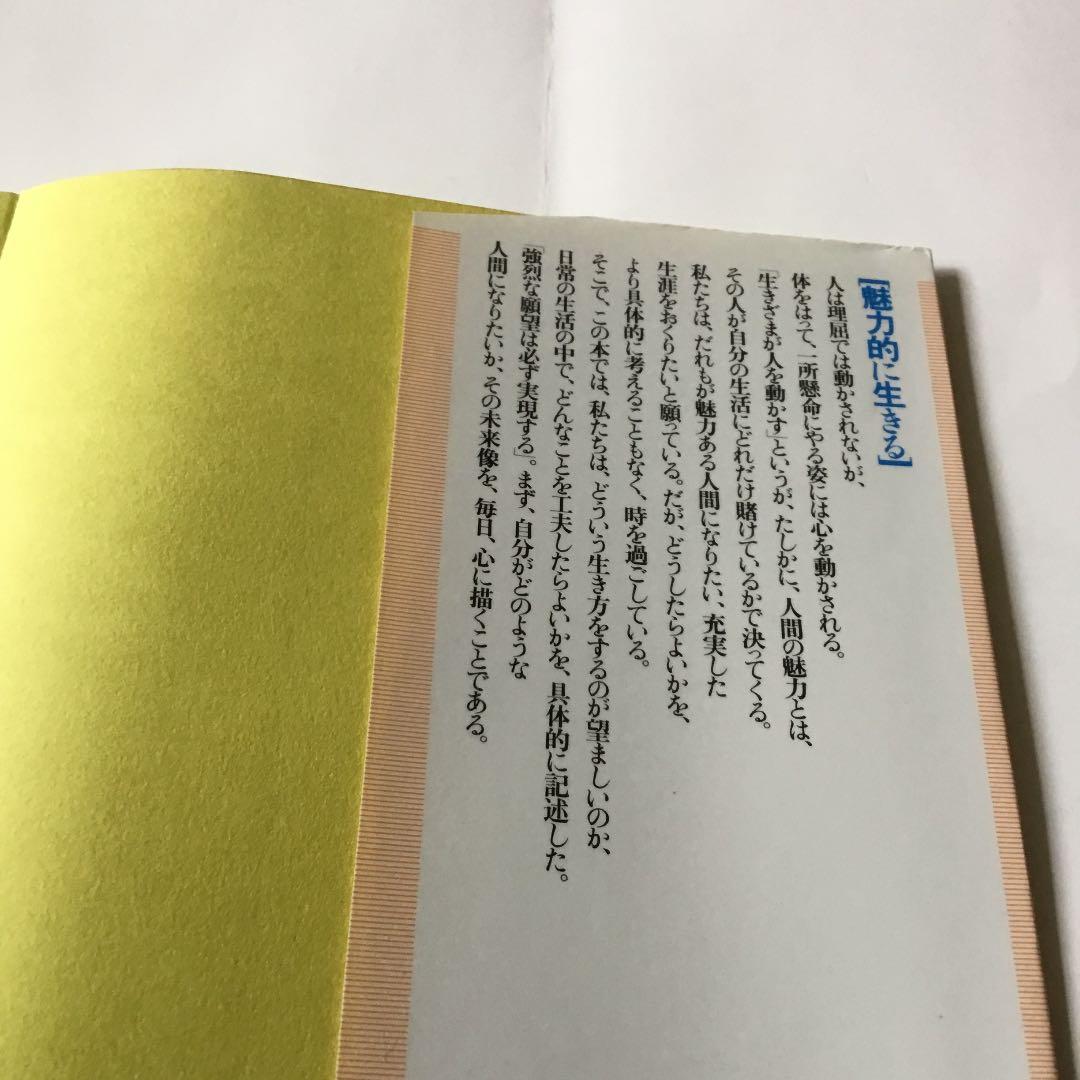 【魅力的に生きる】
人は理屈では動かされないが、
体をはって、一所懸命にやる姿には心を動かされる。
「生きざまが人を動かす」というが、たしかに、人間の魅力とは、
その人が自分の生活にどれだけ賭けているかで決ってくる。
私たちは、だれもが魅力ある人間になりたい、充実した
生涯をおくりたいと願っている。だが、どうしたらよいかを、
より具体的に考えることもなく、時を過ごしている。
そこで、この本では、私たちは、どういう生き方をするのが望ましいのか、
日常の生活の中で、どんなことを工夫したらよいかを、具体的に記述した。
「強烈な願望は必ず実現する」。まず、自分がどのような
人間になりたいか、その未来像を、毎日、心に描くことである。